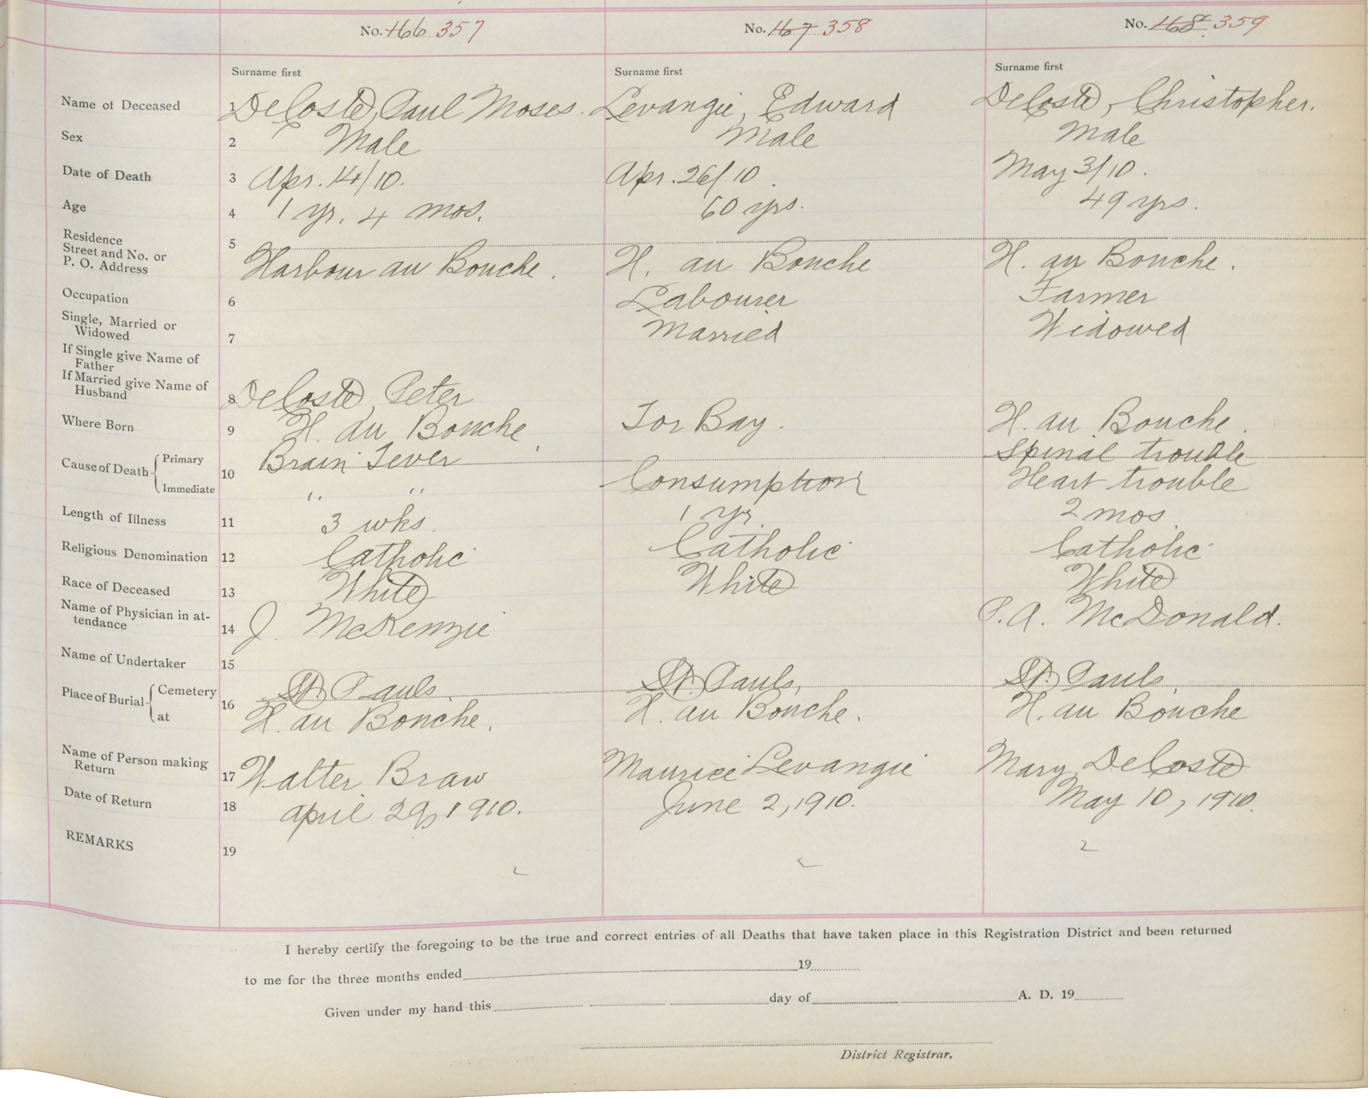 No. 166 357 No. 167 358 No. 168. 359
Surname first Surname first Surname first
Name of Deceased 1 DeCoste, Paul Moses. Levangie, Edward DeCoste, Christopher.
Sex 2 Male Male Male
Date of Death 3 Apr. 14/10. Apr. 26/10. May 3/10.
Age 4 1 yr. 4 mos. 60 yrs. 49 yrs.
Residence
Street and No. or
P. O. Address 5 Harbour au Bouche. H. au Bouche H. au Bouche.
Occupation 6 Labourer Farmer
Single, Married or
Widowed 7 Married Widowed
If Single give Name of
Father
If Married give Name of
Husband 8 DeCoste Peter
Where Born 9 H. au Bouche Tor Bay. H. au Bouche.
Cause of Death Primary 10 Brain Fever Consumption Spinal trouble
Immediate " " Heart trouble
Length of Illness 11 3 wks. 1 yr. 2 mos
Religious Denomination 12 Catholic Catholic Catholic
Race of Deceased 13 White White White
Name of Physician in at-
tendance 14 J. McKenzie P. A. McDonald.
Name of Undertaker 15
Place of Burial Cemetery 16 St. Pauls. St. Pauls, St. Pauls,
at H. au Bouche. H. au Bouche. H. au Bouche
Name of Person making
Return 17 Walter Braw Maurice Levangie Mary DeCoste
Date of Return 18 April 29, 1910. June 2, 1910. May 10, 1910.
REMARKS 19
I hereby certify the foregoing to be the true and correct entries of all Deaths that have taken place in this Registration District and been returned
to me for the three months ended 19
Given under my hand this day of A. D. 19
District Registrar.